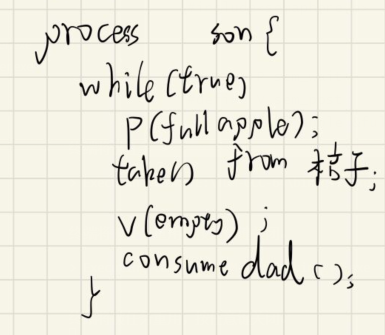 process son {
while (true)
P(full apple);
take() from 桔子;
V(empty) ;
consume dad ();
}